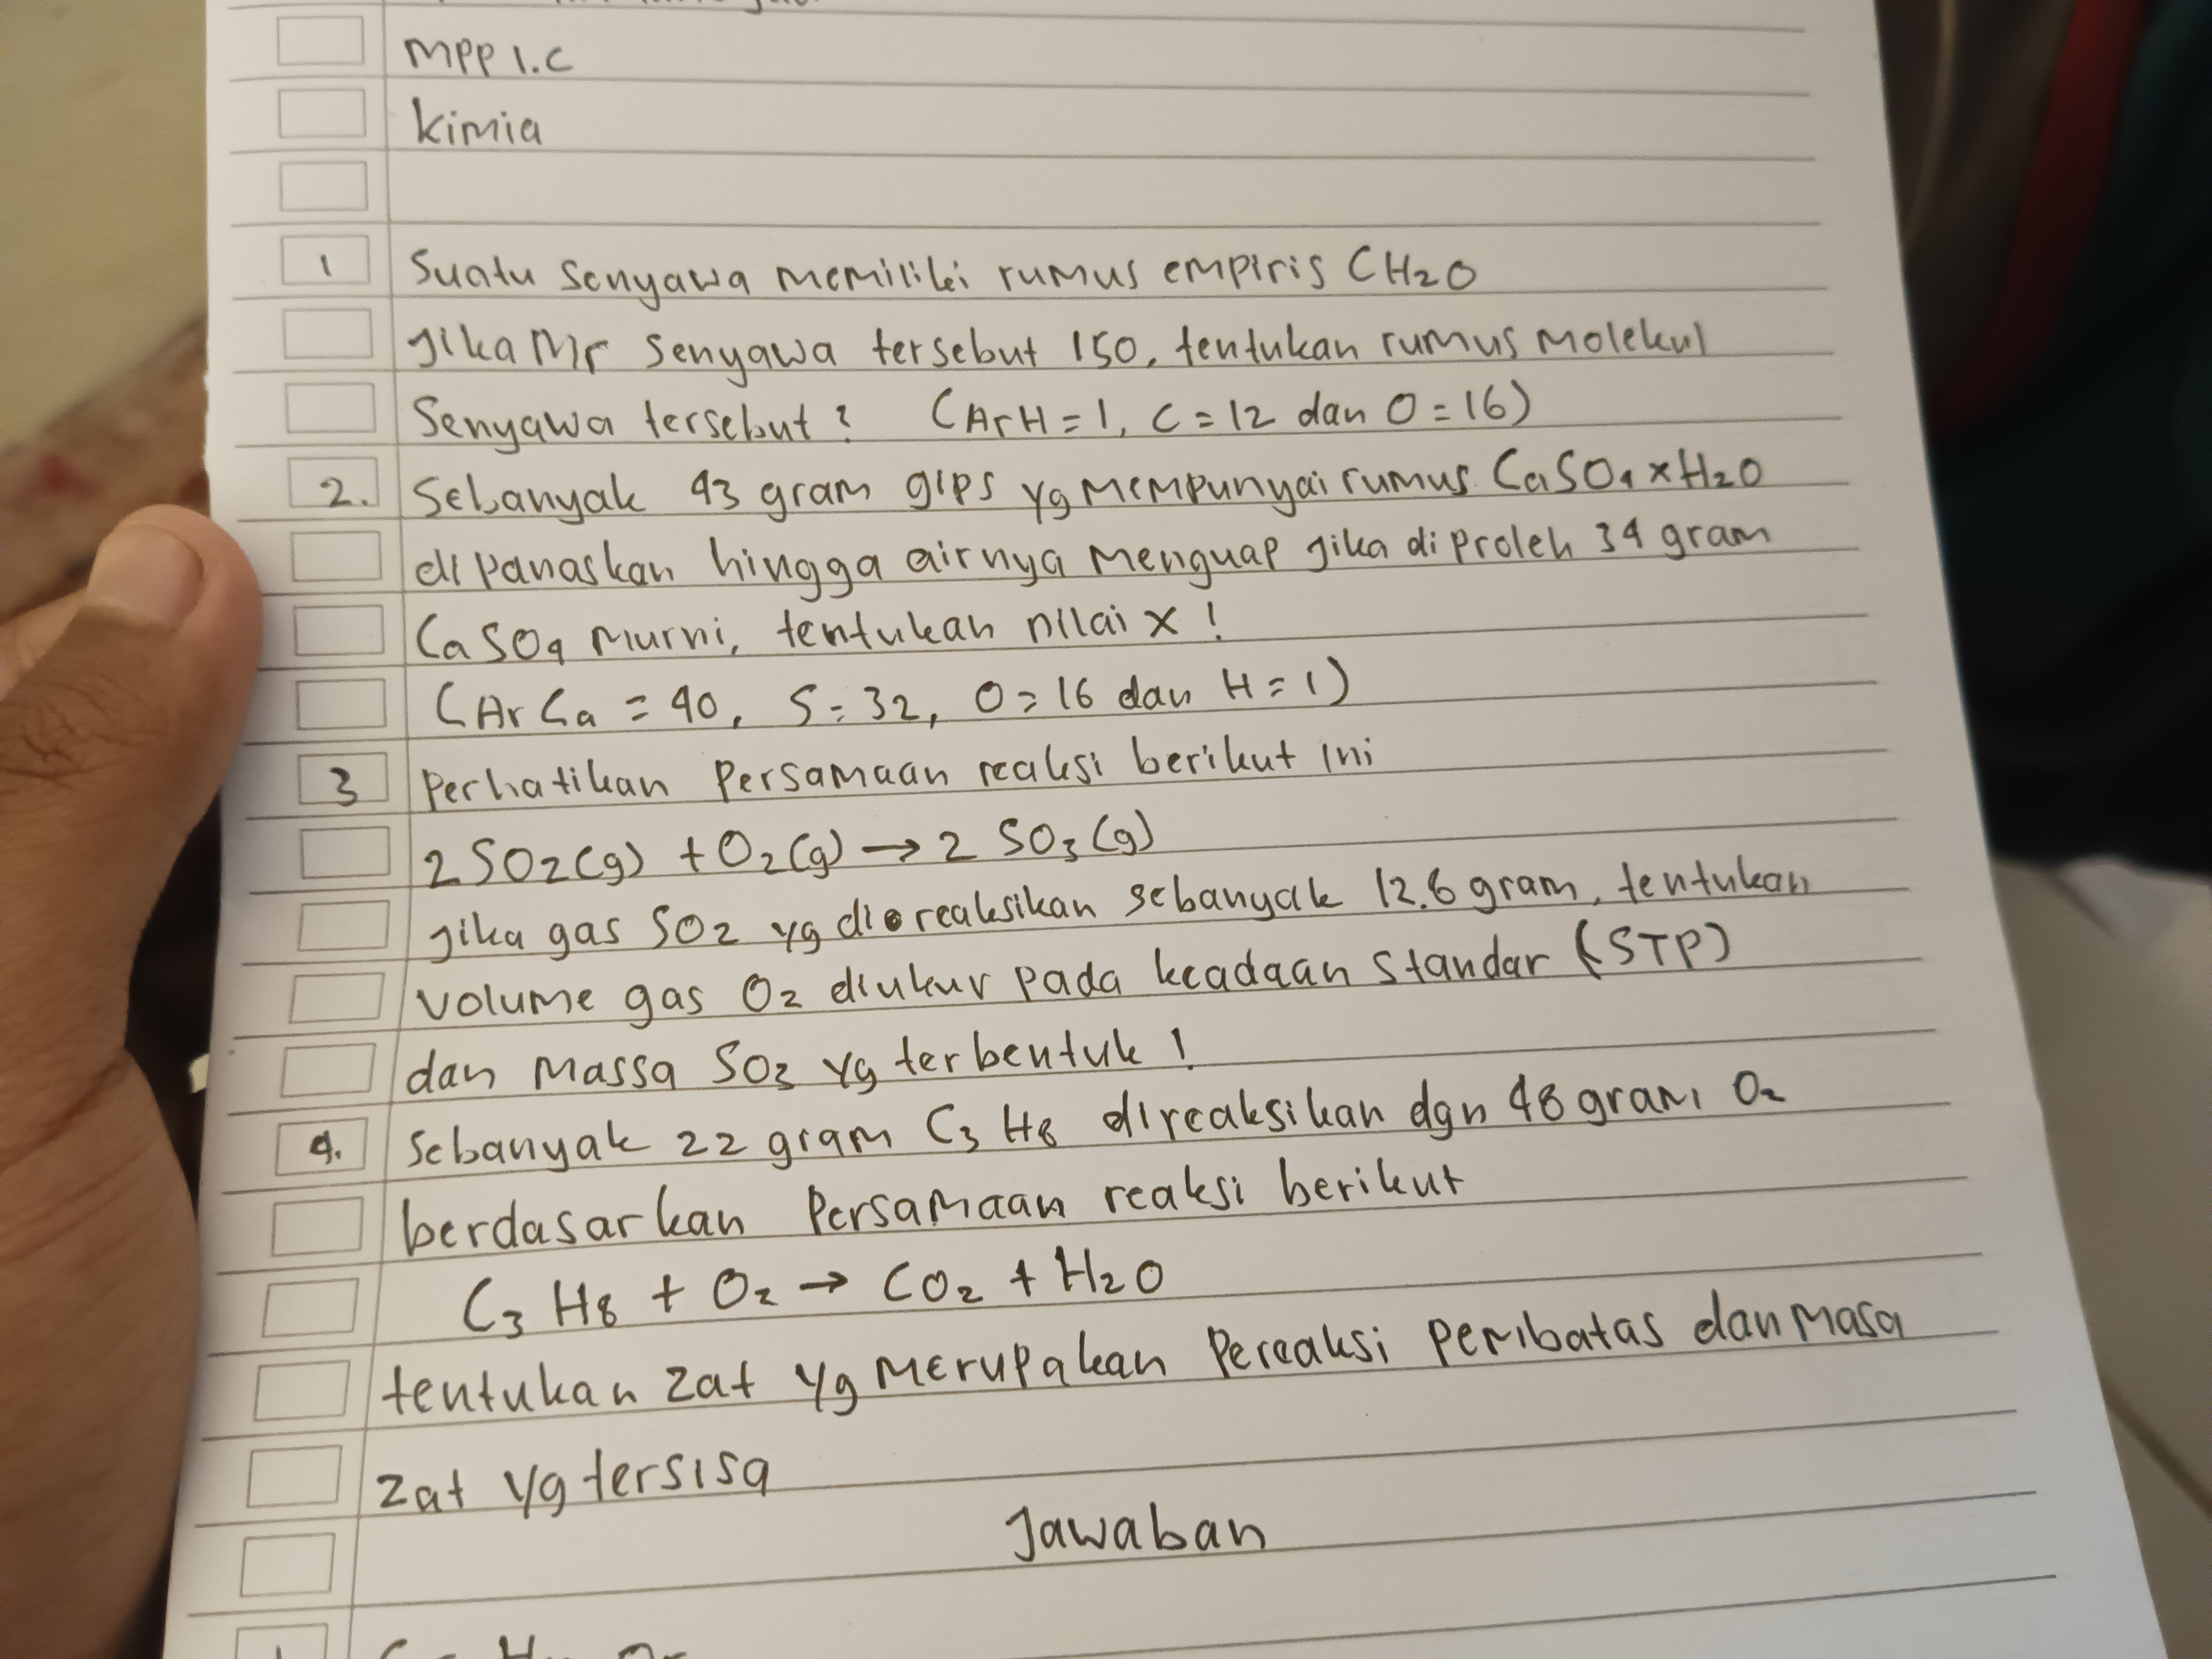 MPP 1.C
kimia
1 Suatu senyawa memiliki rumus empiris CH2O
jika Mr senyawa tersebut 150, tentukan rumus molekul
Senyawa tersebut? (Ar H = 1, C = 12 dan O = 16)
2. Sebanyak 43 gram gips yg mempunyai rumus CaSO4 x H2O
di panaskan hingga airnya menguap jika diproleh 34 gram
CaSO4 murni, tentukan nilai x!
(Ar Ca = 40, S = 32, O = 16 dan H = 1)
3 Perhatikan persamaan reaksi berikut ini
2 SO2 (g) + O2 (g) → 2 SO3 (g)
jika gas SO2 yg direaksikan sebanyak 12.8 gram, tentukan
volume gas O2 diukur pada keadaan standar (STP)
dan massa SO3 yg terbentuk!
4. Sebanyak 22 gram C3 H8 direaksikan dgn 48 gram O2
berdasarkan persamaan reaksi berikut
C3 H8 + O2 → CO2 + H2O
tentukan zat yg merupakan pereaksi pembatas dan masa
zat yg tersisa
Jawaban